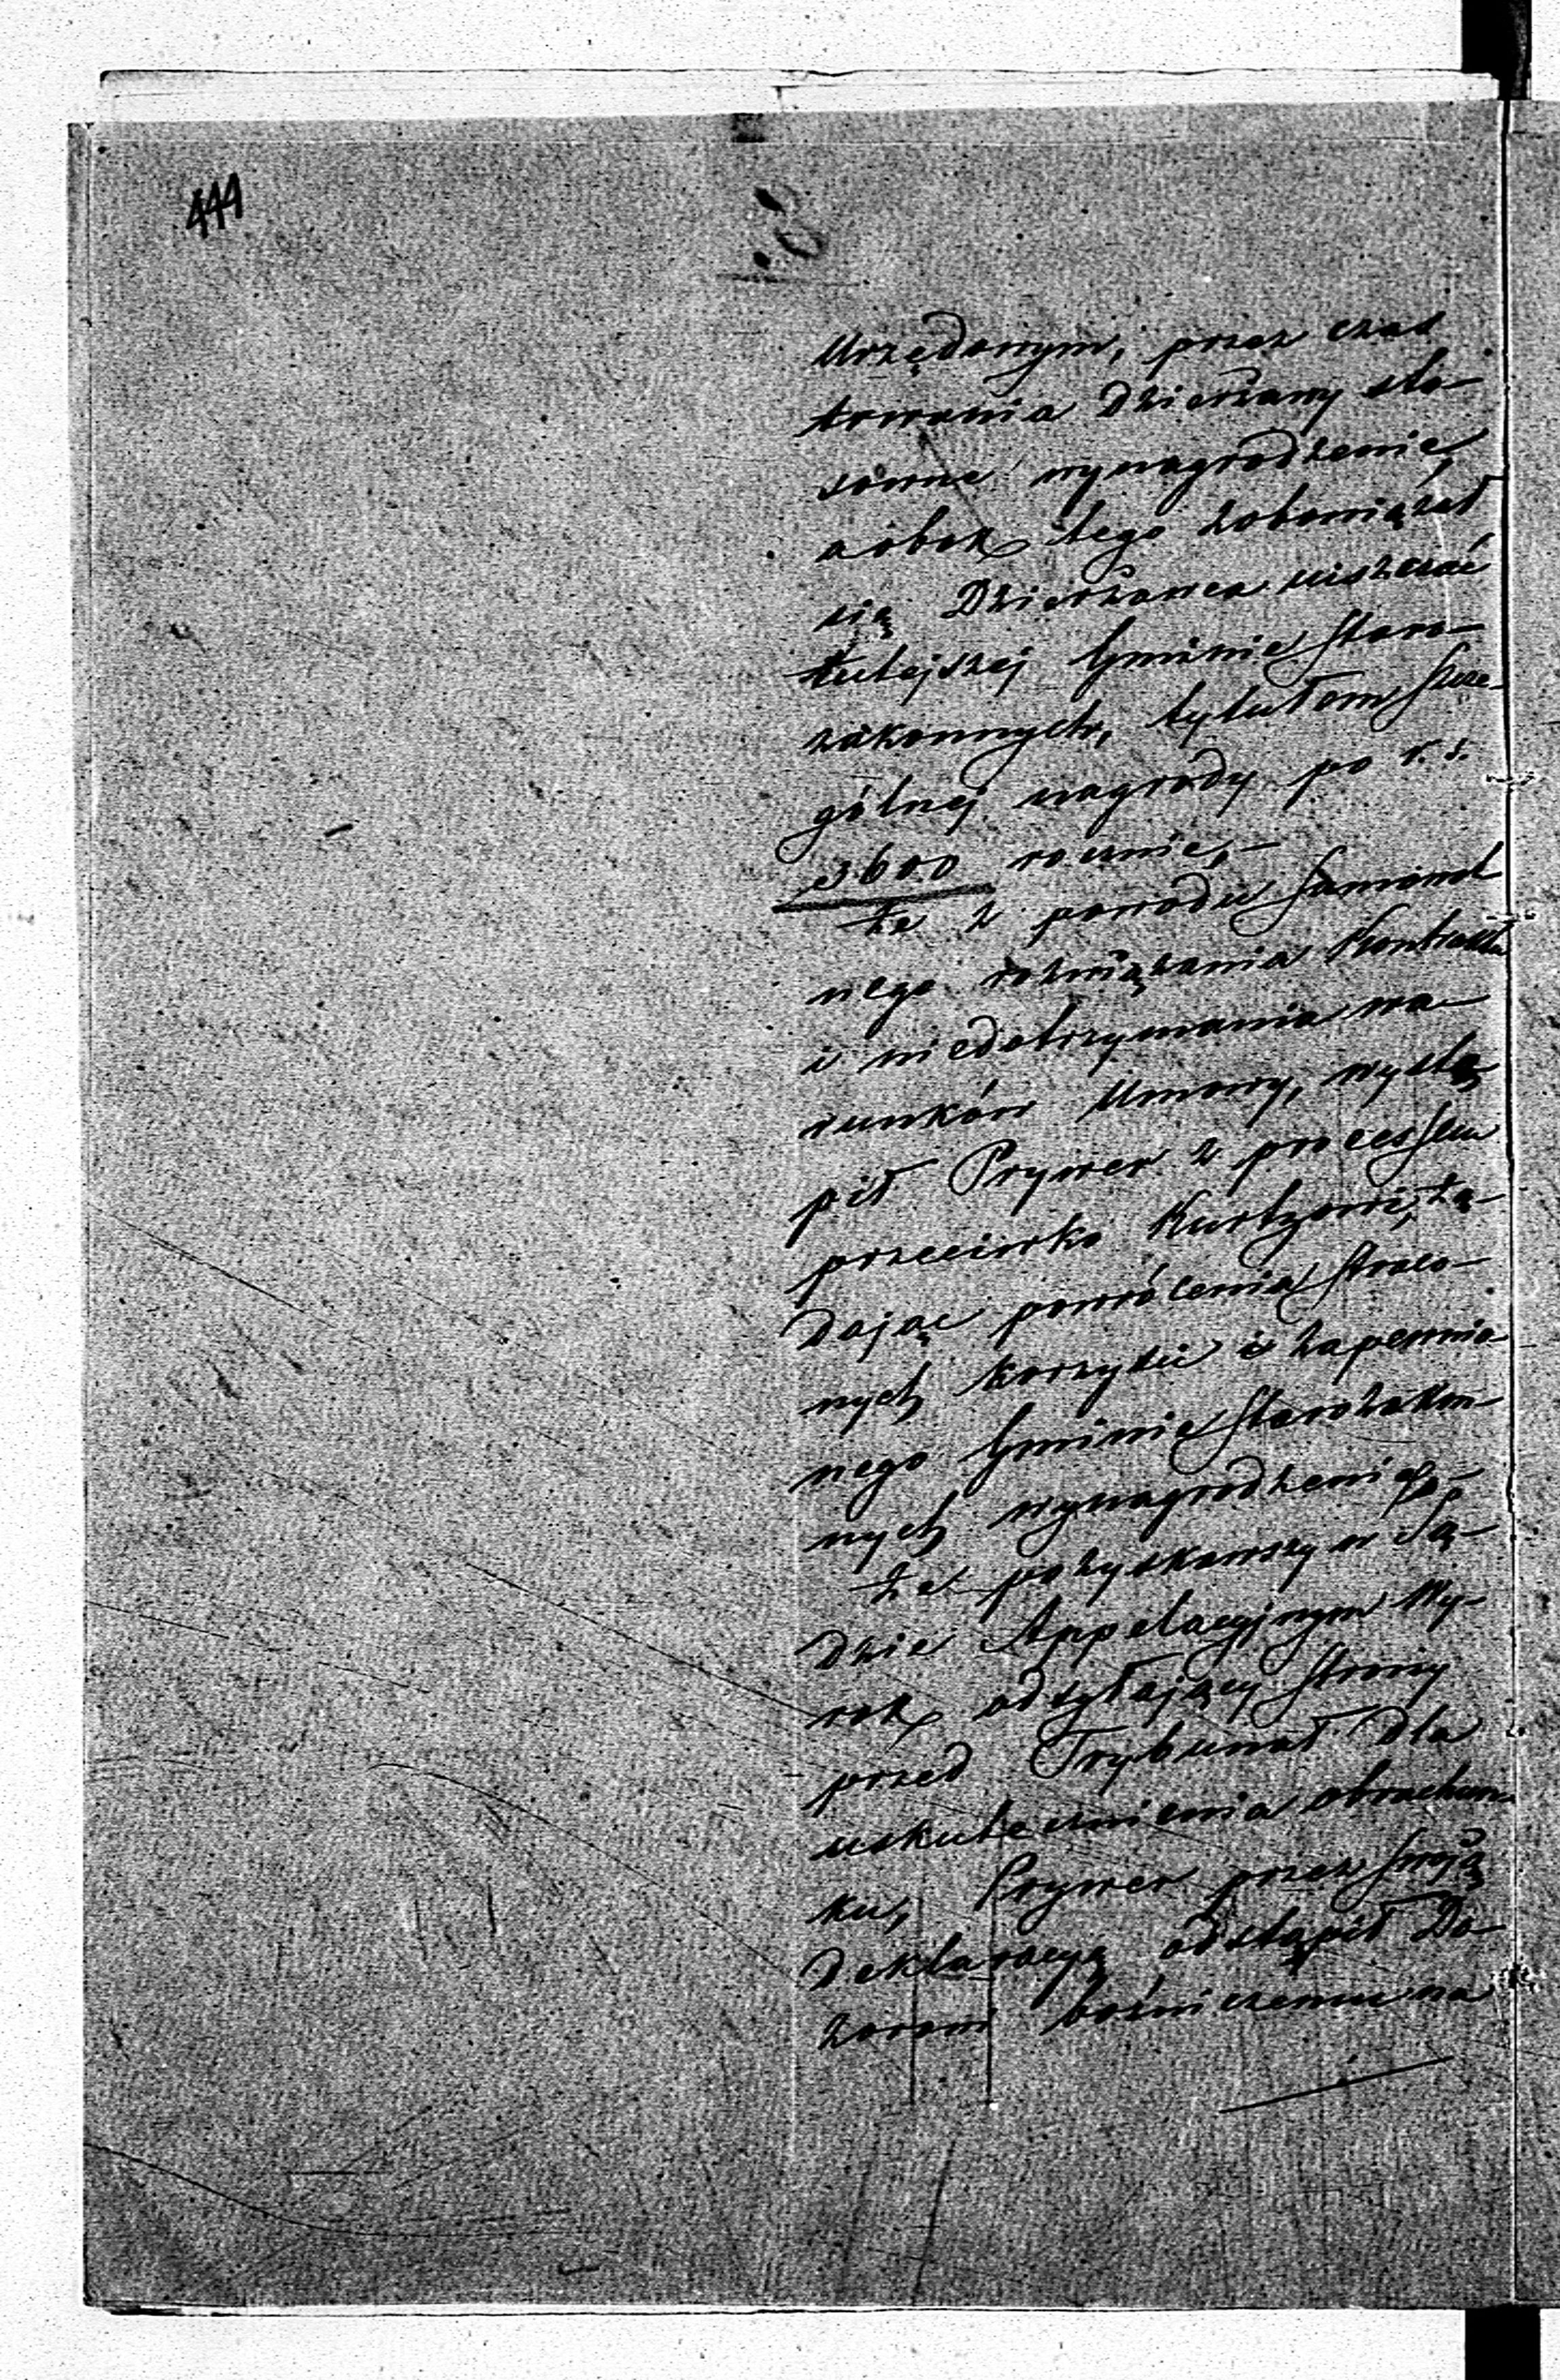 444
Urzędowym, przez czas
trwania Dzierżawy sto-
sówne wynagrodzenie,
a obok tego zobowiązał
się Dzierżawca uiszczać
tutejszej Gminie Staro-
zakonnych, tytułem szcze-
gólnej nagrody po r. s.
3600 rocznie,—
że z powodu samowol
nego rozwiązania Kontraktu
i niedotrzymania wa-
runków Umowy, wystą
pił Prywer z processem
przeciwko Kurtzowi, żą-
dając powrócenia straco-
nych korzyści i zapewnio
nego Gminie Starozakon
nych wynagrodzenia,—
że pozyskawszy w Są-
dzie Appelacyjnym Wy-
rok odsyłający strony
przed Trybunał dla
uskutecznienia obrachun-
ku, Prywer przez swoją
deklaracyą odstąpił Do-
zorowi bożniczemu na